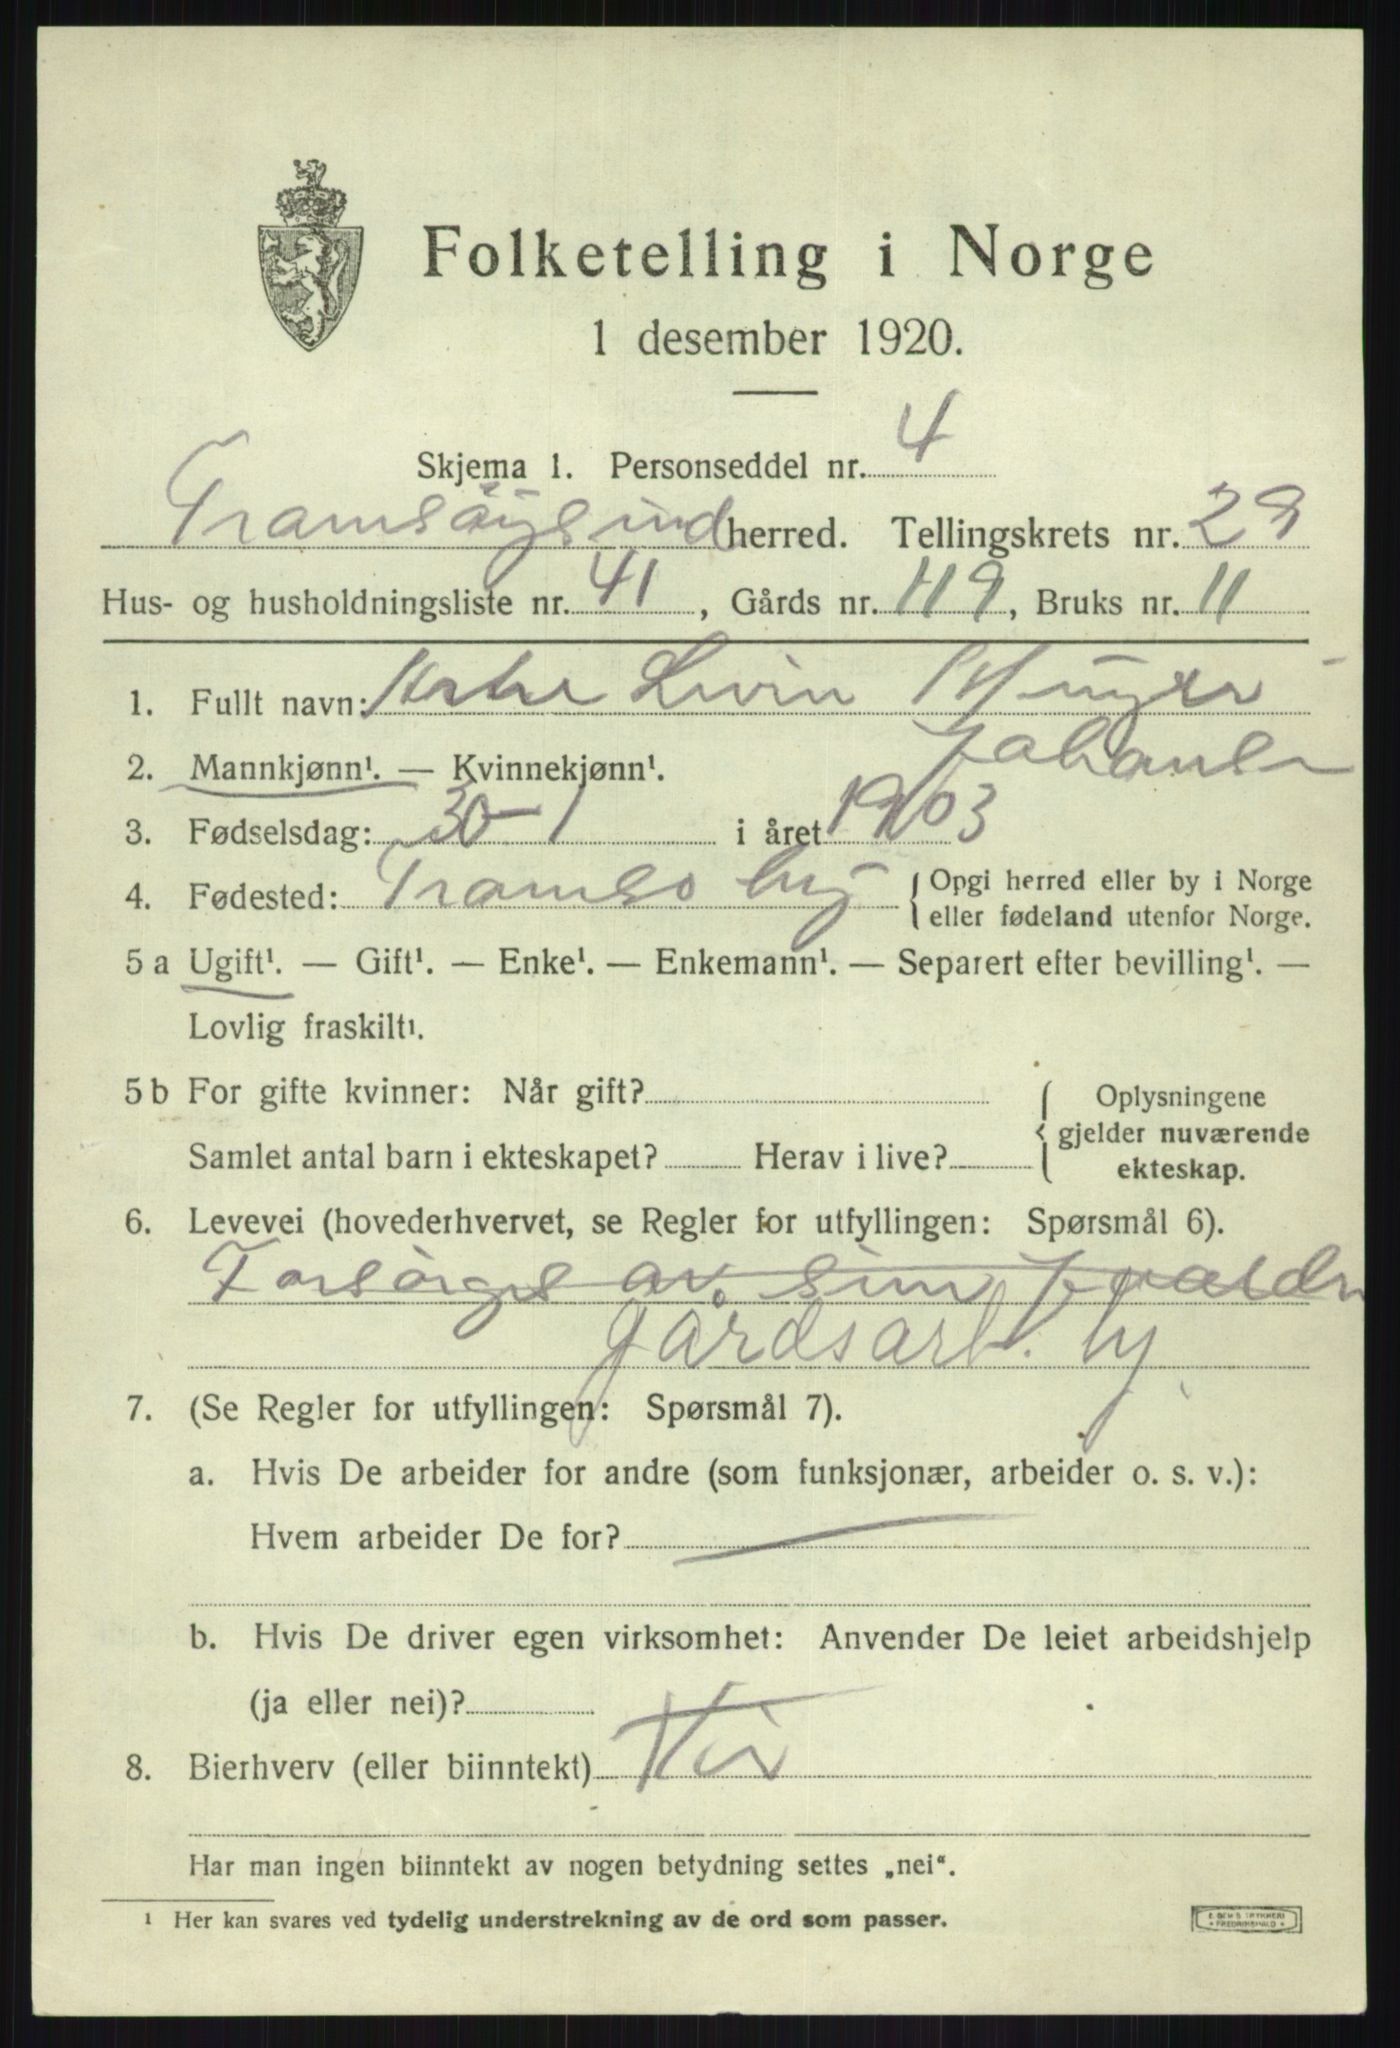 Folketelling i Norge
1 desember 1920.
Skjema 1. Personseddel nr. 4
Tromsöysund herred. Tellingskrets nr. 29
Hus- og husholdningsliste nr. 41, Gårds nr. 119, Bruks nr. 11
1. Fullt navn:
Johansen
2. Mannkjønn¹. — Kvinnekjønn¹.
3. Fødselsdag: 30-1 i året 1903
4. Fødested: Tromsö by { Opgi herred eller by i Norge
eller fødeland utenfor Norge.
5 a Ugift¹. — Gift¹. — Enke¹. — Enkemann¹. — Separert efter bevilling¹. —
Lovlig fraskilt¹.
5 b For gifte kvinner: Når gift?
Oplysningene
gjelder nuværende
ekteskap.
Samlet antal barn i ekteskapet? Herav i live?
6. Levevei (hovederhvervet, se Regler for utfyllingen: Spørsmål 6).
Forsörges av sine
gårdsarb. hj.
7. (Se Regler for utfyllingen: Spørsmål 7).
a. Hvis De arbeider for andre (som funksjonær, arbeider o. s. v.):
Hvem arbeider De for?
b. Hvis De driver egen virksomhet: Anvender De leiet arbeidshjelp
(ja eller nei)?
8. Bierhverv (eller biinntekt)
Har man ingen biinntekt av nogen betydning settes „nei“.
¹ Her kan svares ved tydelig understrekning av de ord som passer.